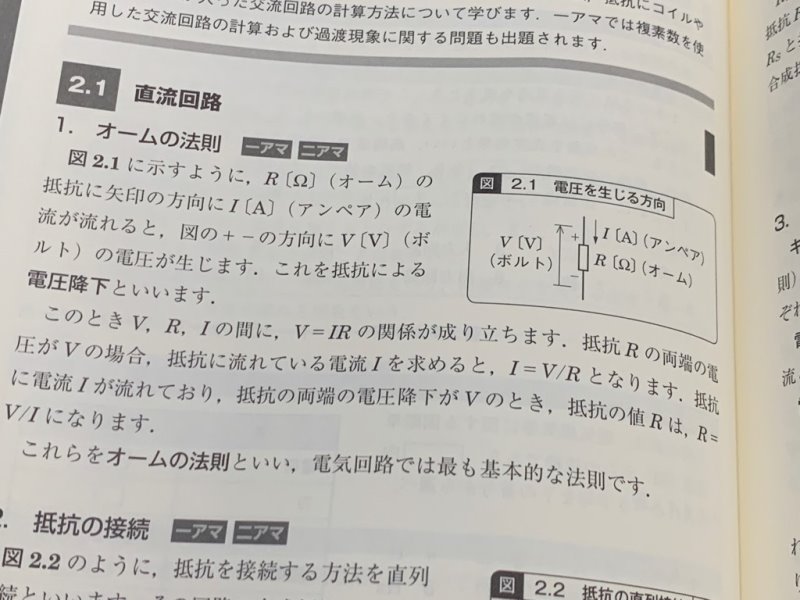 入った交流回路の計算方法について学びます.一アマでは複素数を使
用した交流回路の計算および過渡現象に関する問題も出題されます.
2.1 直流回路
1. オームの法則 一アマ 二アマ
図2.1に示すように,R〔Ω〕(オーム)の
抵抗に矢印の方向にI〔A〕(アンペア)の電
流が流れると,図の+-の方向にV〔V〕(ボ
ルト)の電圧が生じます.これを抵抗による
電圧降下といいます.
図 2.1 電圧を生じる方向
V〔V〕
(ボルト)
+
-
I〔A〕(アンペア)
R〔Ω〕(オーム)
このときV,R,Iの間に,V=IRの関係が成り立ちます.抵抗Rの両端の電
圧がVの場合,抵抗に流れている電流Iを求めると,I=V/Rとなります.抵抗
に電流Iが流れており,抵抗の両端の電圧降下がVのとき,抵抗の値Rは,R=
V/Iになります.
これらをオームの法則といい,電気回路では最も基本的な法則です.
2. 抵抗の接続 一アマ 二アマ
図2.2のように,抵抗を接続する方法を直列
続といいます.
図 2.2 抵抗の直列接
抵抗
Rsと
合成抵
3.
キ
則)
ぞれ
電
流
れ